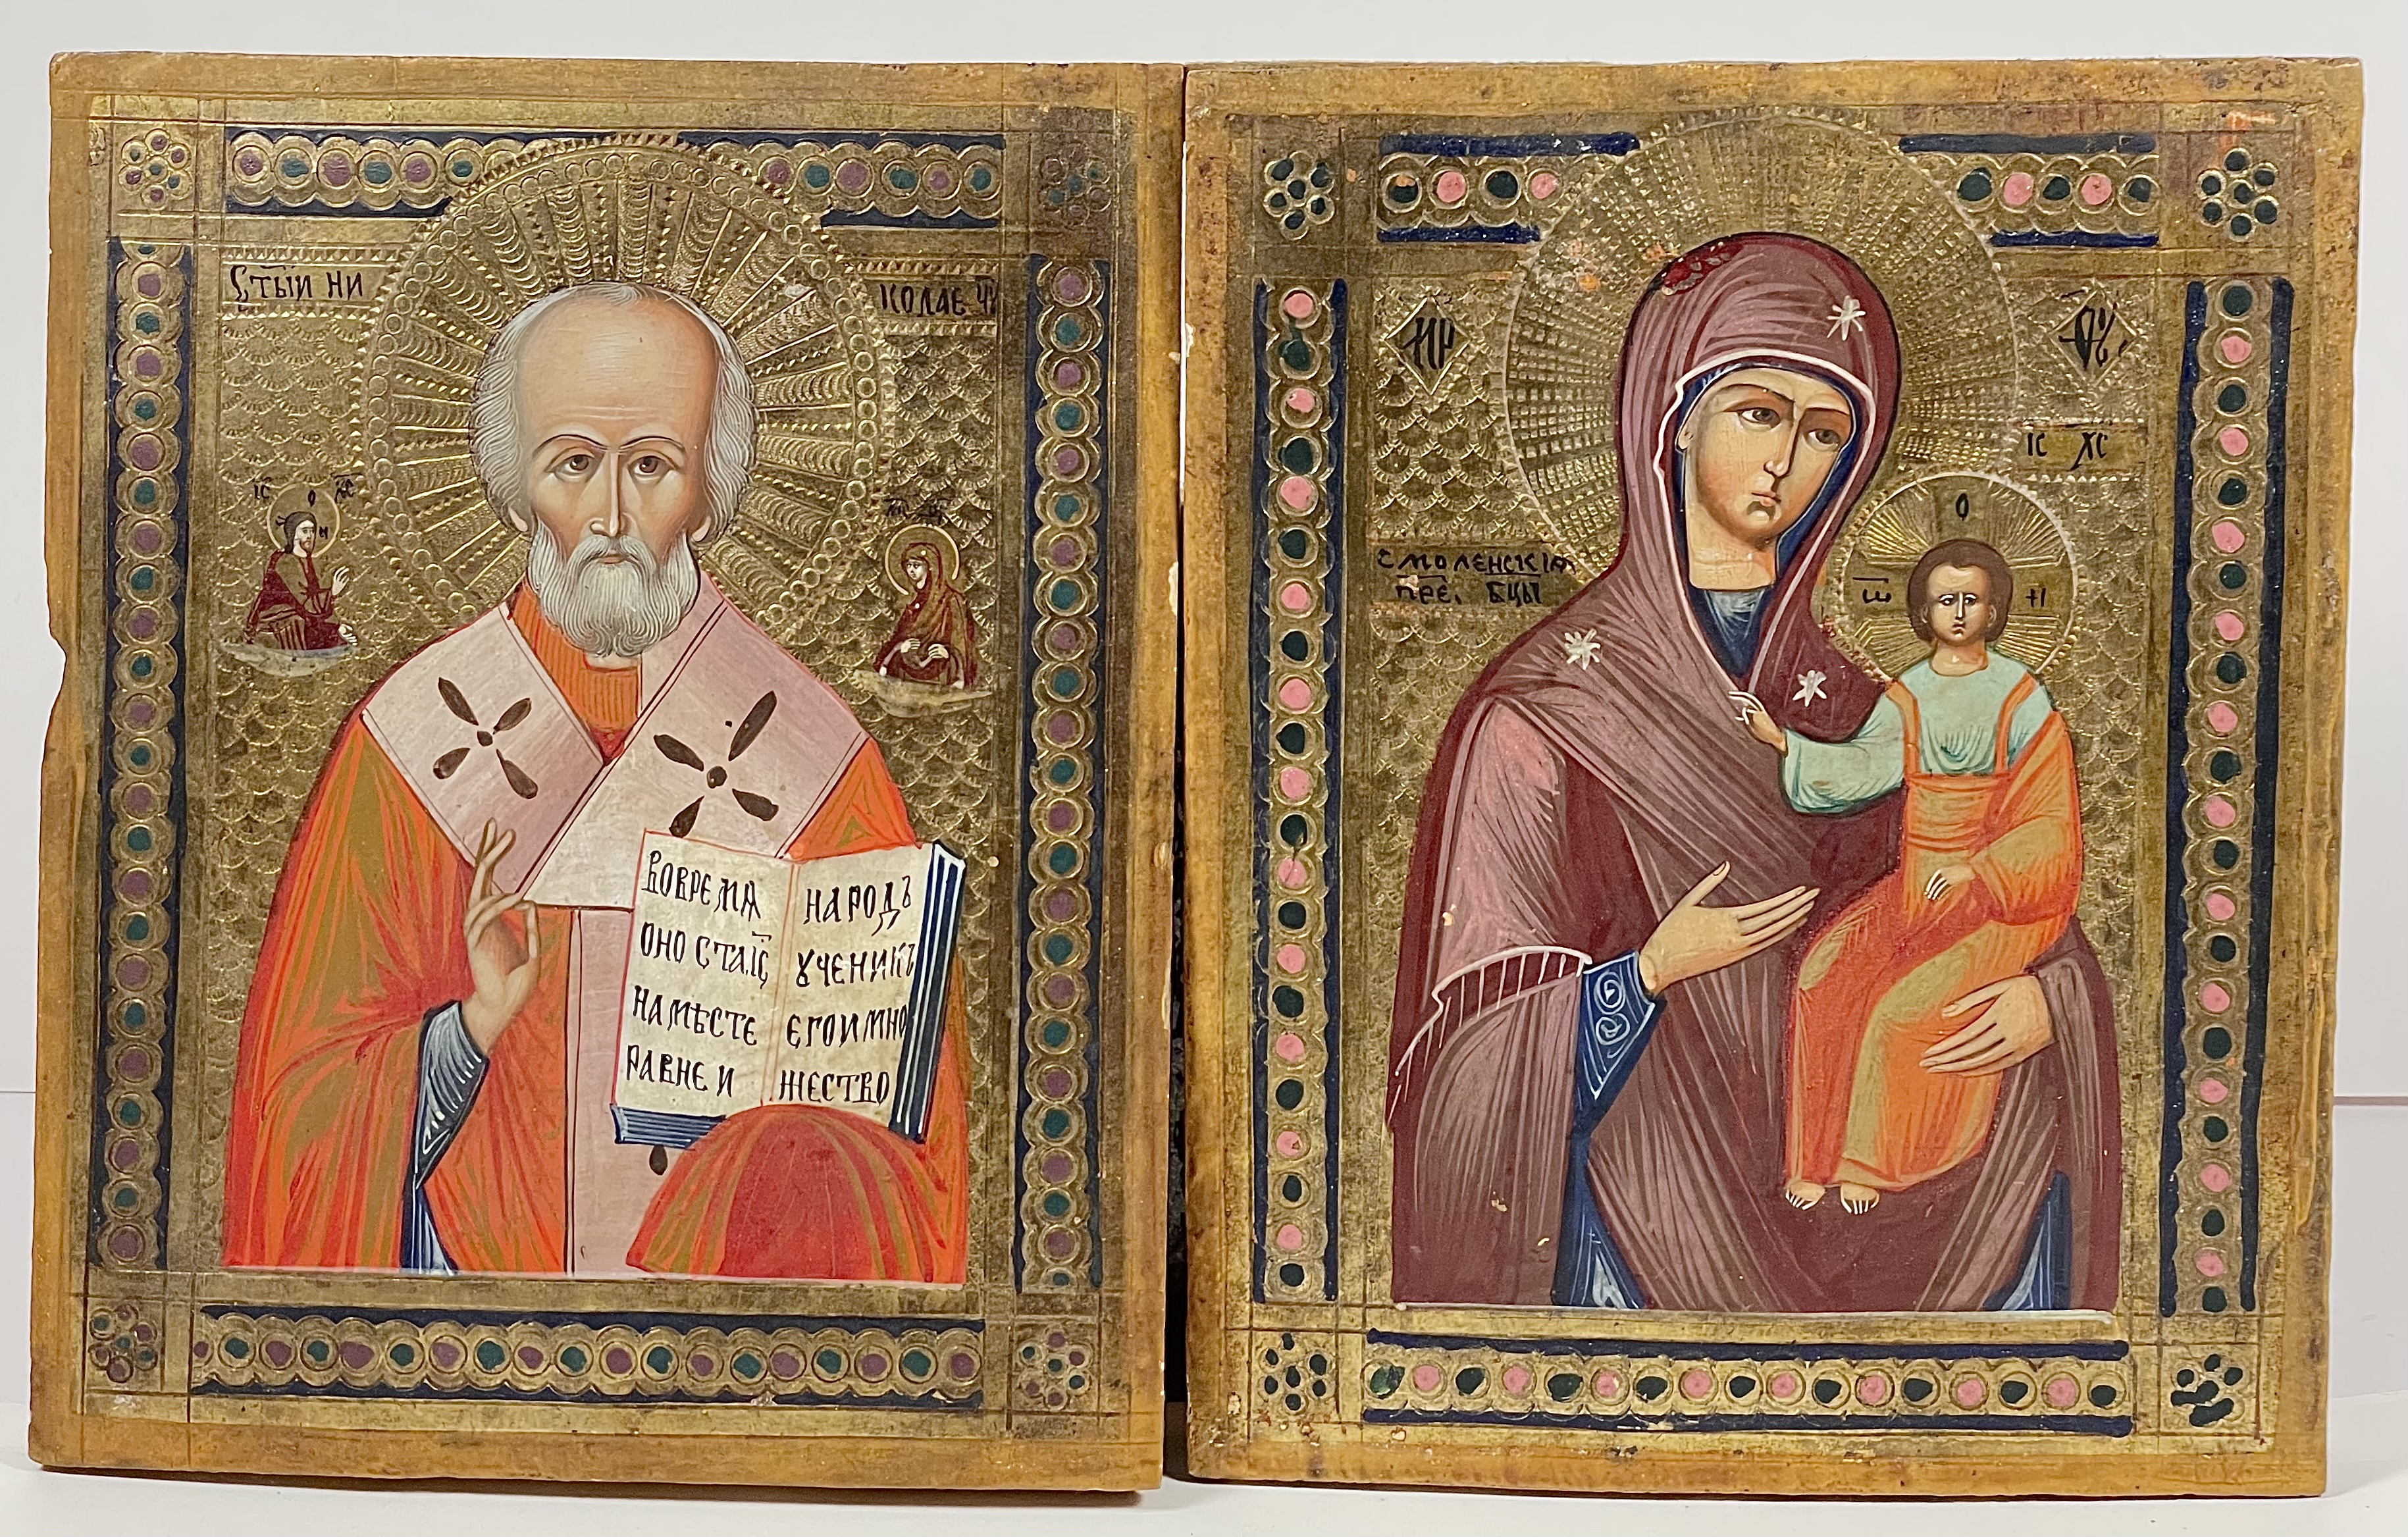 С҃ТЫЙ НИ
КОЛАЕ ЧЮ
ІС ХС
О Н
ВОВРЕМѦ
ОНО СТА ІС҃
НАМѢСТЕ
РАВНЕ И
НАРОДЪ
ꙊЧЕНИКЪ
ЕГОИМНО
ЖЕСТВО
МР ѲУ
ІС ХС
СМОЛЕНСКІѦ
ПРЕ. БЦЫ
О
Ѡ Н